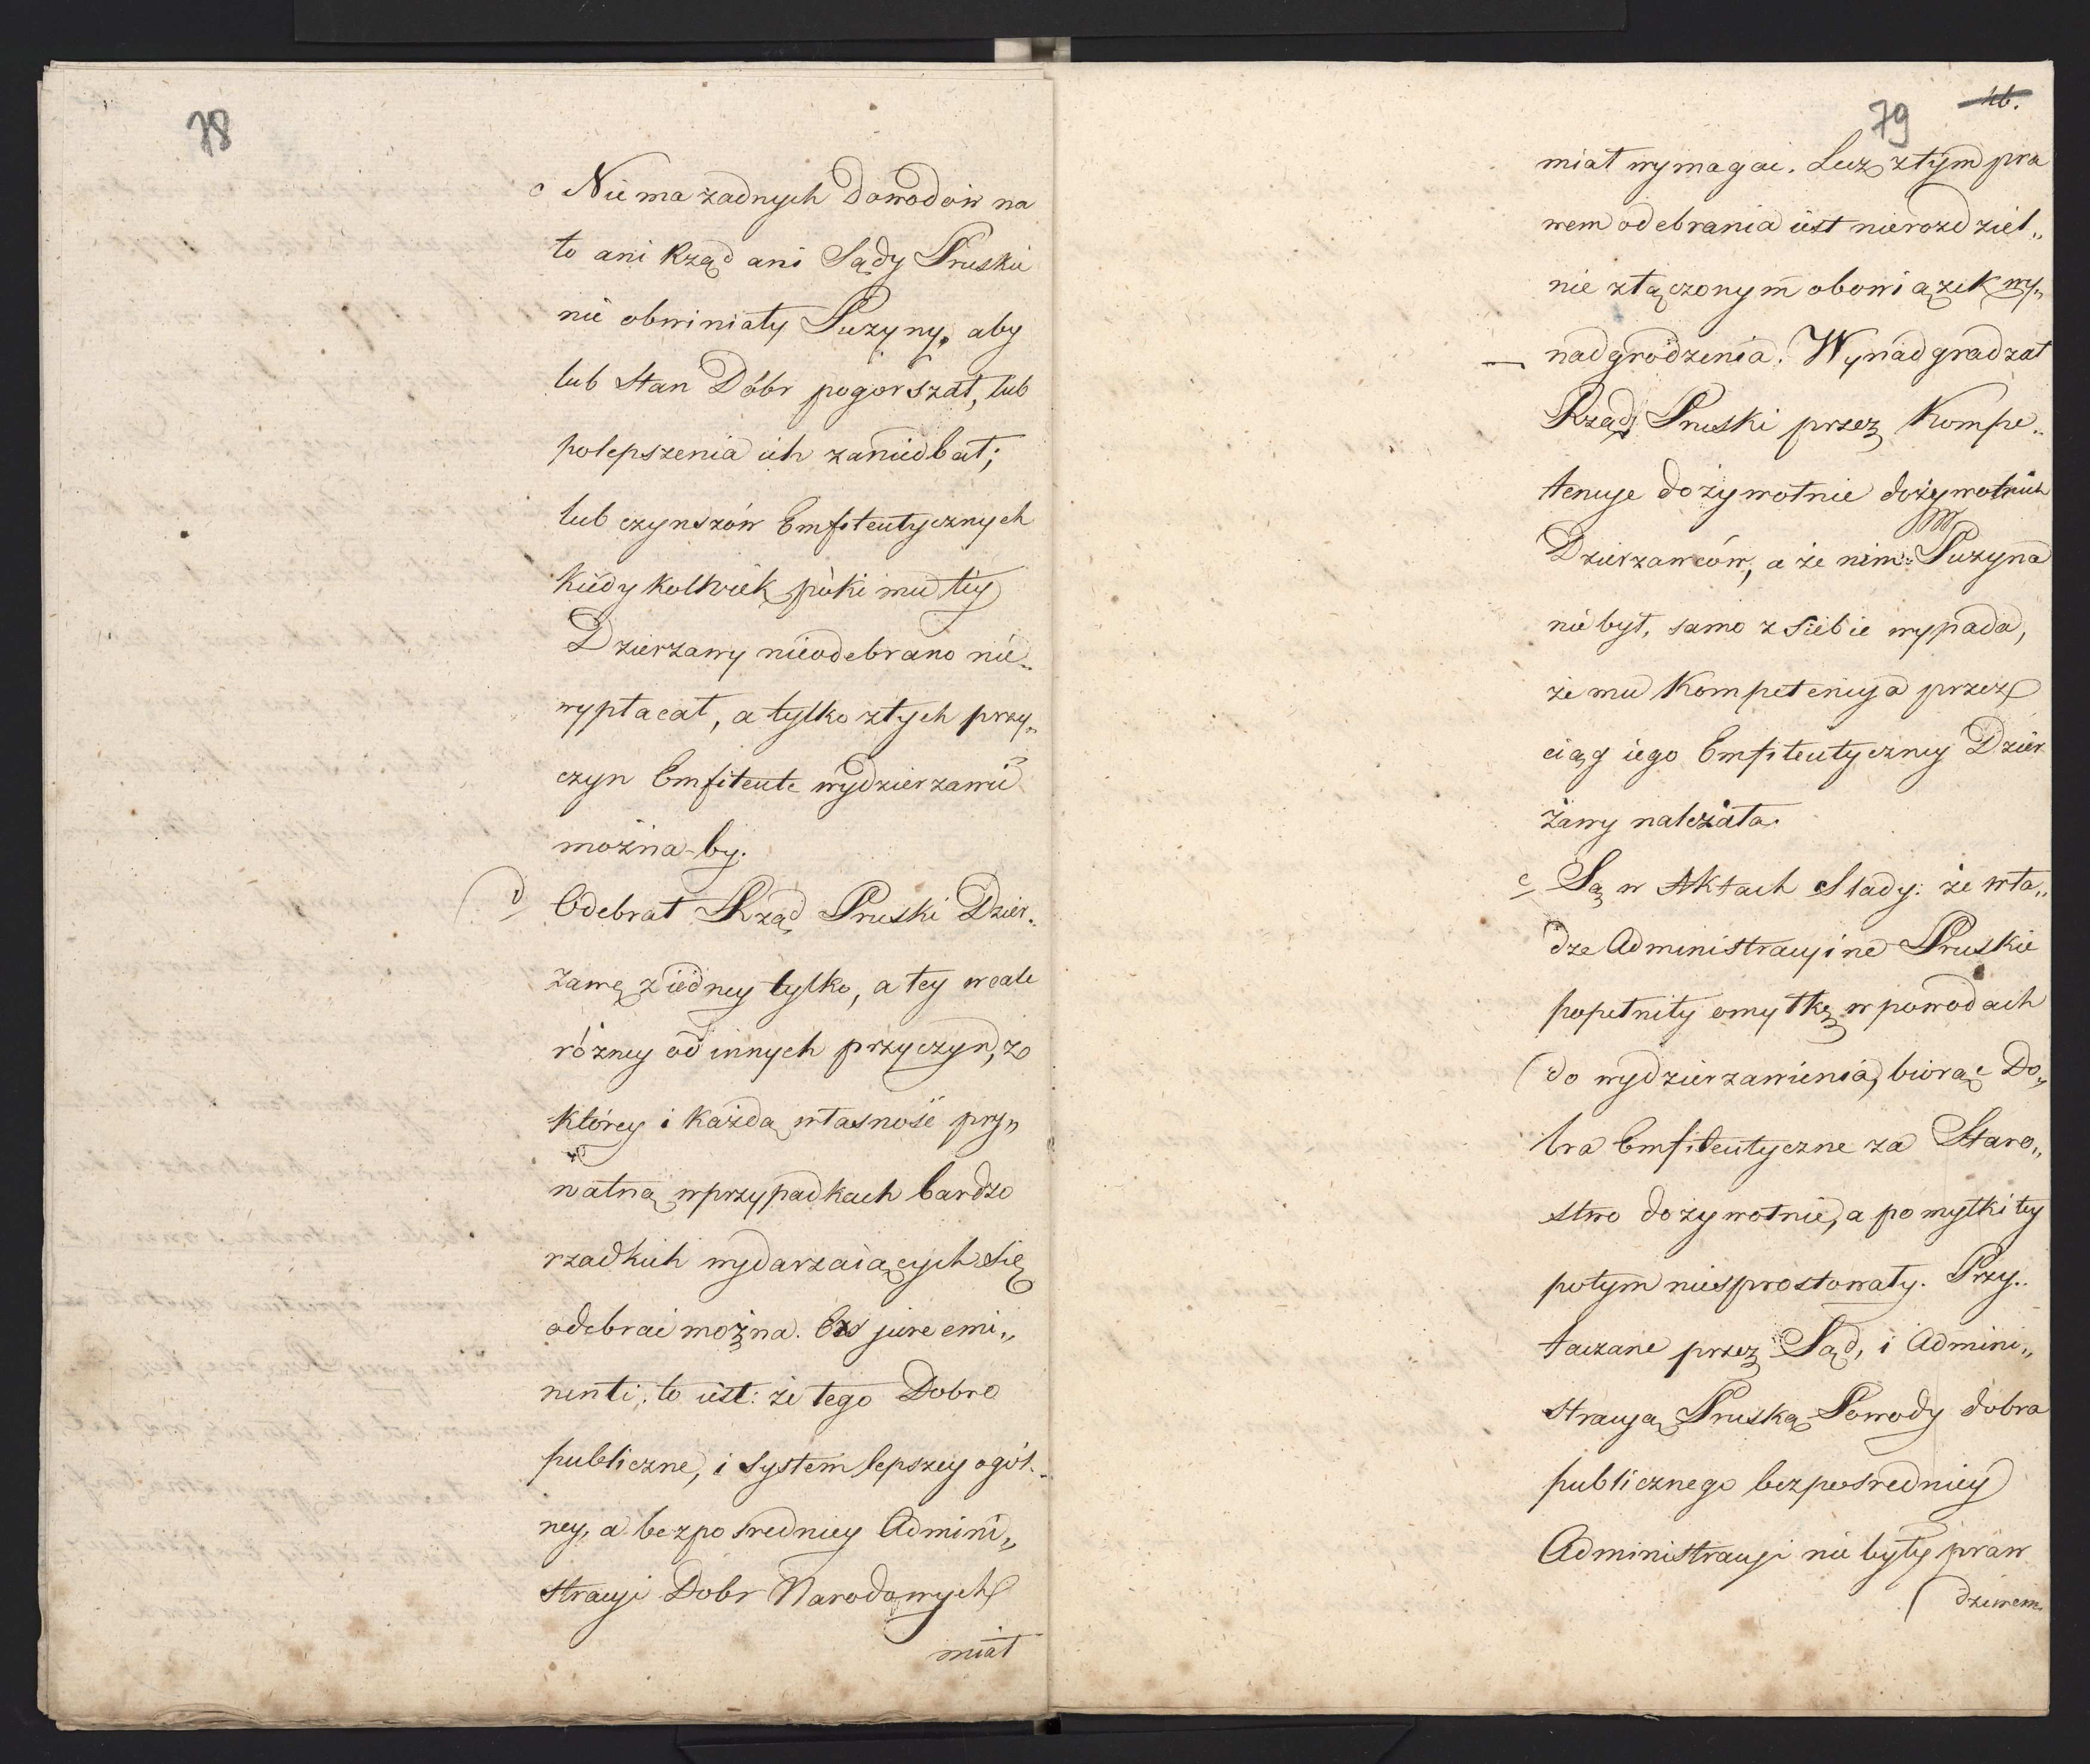 78
c Nie ma żadnych Dowodów na
to ani Rząd ani Sądy Pruskie
nie obwiniały Puzyny, aby
lub Stan Dóbr pogorszał, lub
polepszenia ich zaniedbał;
lub czynszów Emfiteutycznych
kiedykolwiek póki mu tey
Dzierzawy nieodebrano nie„
wypłacał, a tylko z tych przy„
czyn Emfiteute wydzierzawić
można-by.
d/ Odebrał Rząd Pruski Dzier„
zawę z iedney tylko, a tey wcale
rózney od innych przyczyn, z
którey i każdą własność pry„
watną w przypadkach bardzo
rzadkich wydarzaiących się
odebrać można. Ex jure emi„
nenti, to iest: że tego Dobro
publiczne, i System lepszey ogól„
ney, a bezpośredniey Admini„
stracyi Dobr Narodowych
miał
79 46.
miał wymagać. Lecz z tym pra
wem odebrania iest nierozdziel„
nie złączonym obowiązek wy„
nadgrodzenia. Wynadgradzał
Rząd Pruski przez Kompe„
tencye dożywotnie dożywotnich
Dzierzawców, a że nim Puzyna
nie był, samo z siebie wypada,
że mu Kompetencya przez
ciąg iego Emfiteutyczney Dzier
żawy należała.
e/ Są w Aktach Slady: że wła„
dze Administracyine Pruskie
popełniły omyłkę w powodach
do wydzierzawienia, biorąc Do„
bra Emfiteutyczne za Staro„
stwo dożywotnie, a pomyłki tey
potym niesprostowały. Przy„
taczane przez Sąd, i Admini„
stracyą Pruską Powody dobra
publicznego bezpośredniey
Administracyi nie były praw
dziwem